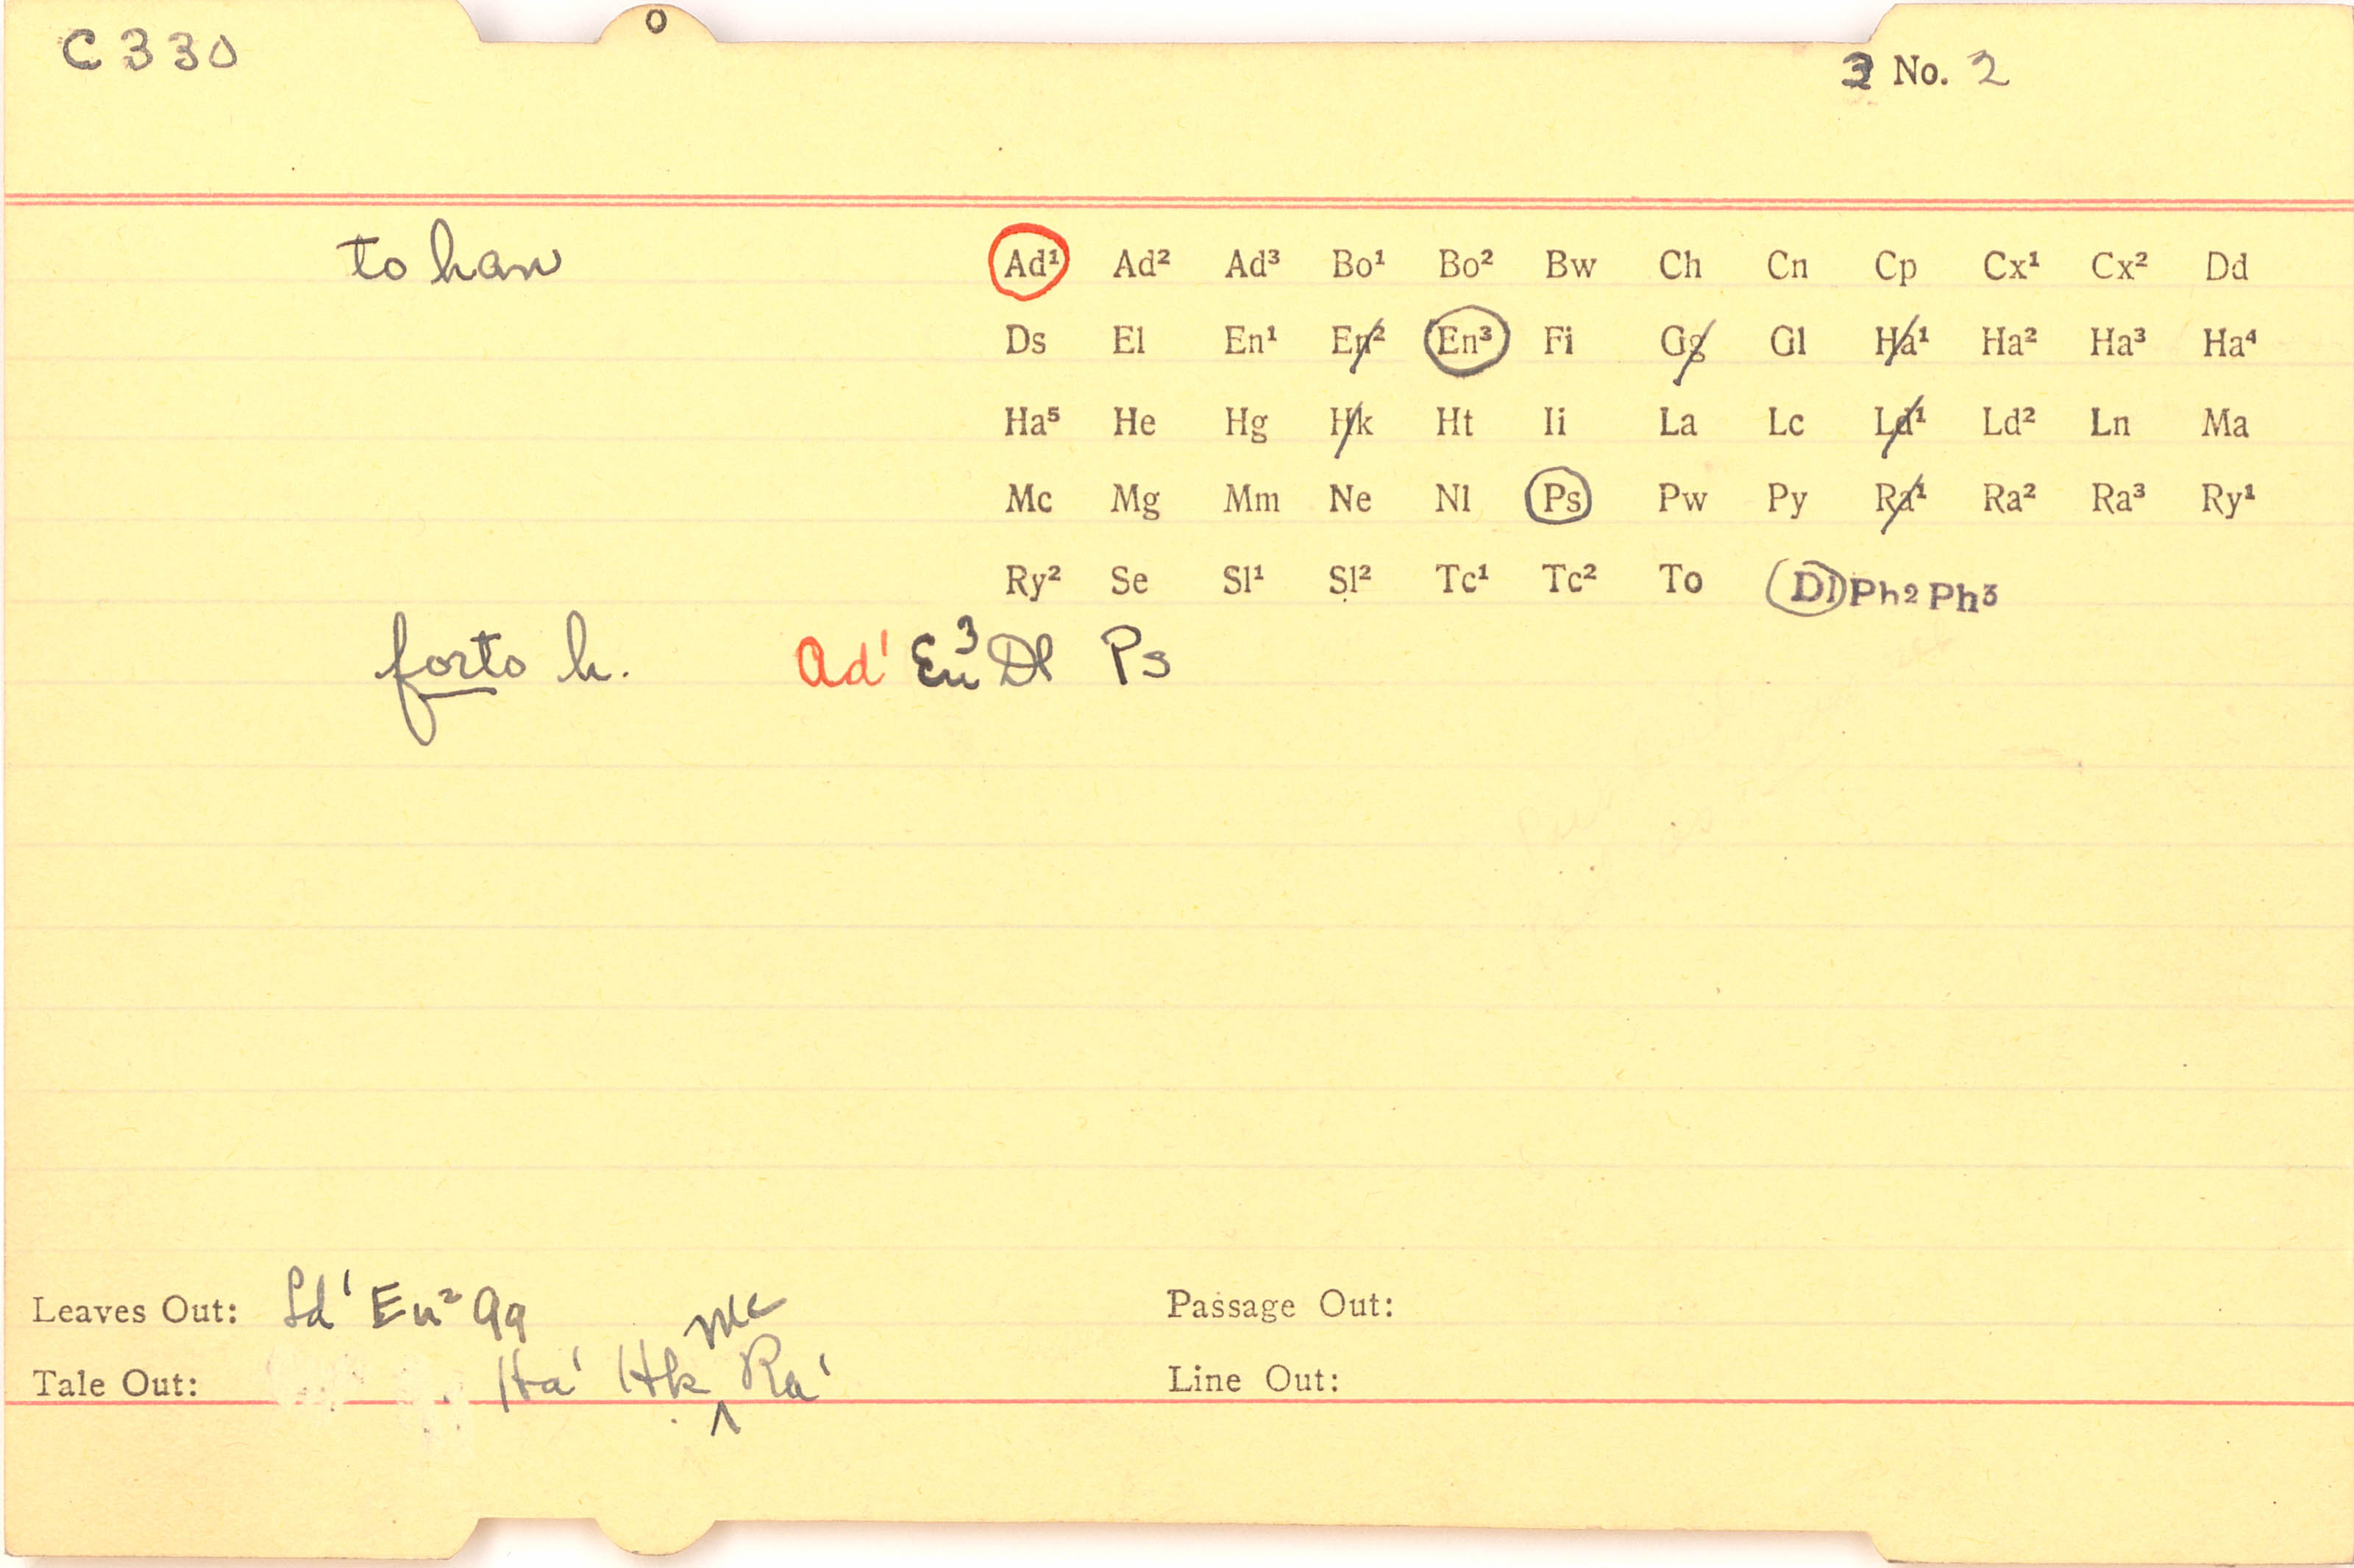 O
C 330
3 No. 2
to han
Ad¹ Ad² Ad³ Bo¹ Bo² Bw Ch Cn Cp Cx¹ Cx² Dd
Ds El En¹ En² En³ Fi Gg Gl Ha¹ Ha² Ha³ Ha⁴
Ha⁵ He Hg Hk Ht Ii La Lc Ld¹ Ld² Ln Ma
Mc Mg Mm Ne Nl Ps Pw Py Ra¹ Ra² Ra³ Ry¹
Ry² Se Sl¹ Sl² Tc¹ Tc² To Dl Ph2 Ph3
forto h. Ad¹ En³ Dl Ps
Leaves Out: Ld¹ En² Gg
Passage Out:
Tale Out: Ha¹ Hk Mc Ra¹
Line Out: